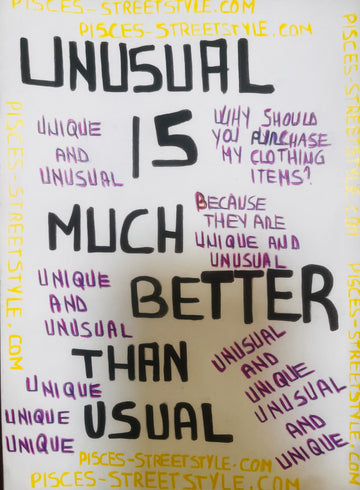 PISCES-STREETSTYLE.COM
PISCES-STREETSTYLE.COM
UNUSUAL
IS
MUCH
BETTER
THAN
USUAL
UNIQUE
AND
UNUSUAL
WHY SHOULD
YOU PURCHASE
MY CLOTHING
ITEMS?
BECAUSE
THEY ARE
UNIQUE AND
UNUSUAL
UNIQUE
AND
UNUSUAL
UNIQUE
UNIQUE
UNIQUE
UNUSUAL
AND
UNIQUE
UNUSUAL
AND
UNIQUE
PISCES-STREETSTYLE.COM
PISCES-STREETSTYLE.COM
PISCES-STREETSTYLE.COM
PISCES-STREETSTYLE.COM
PISCES-STREETSTYLE.COM